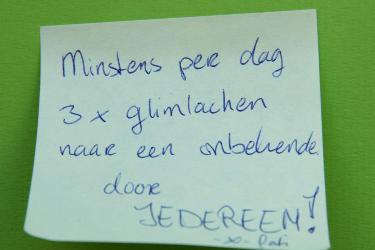 Minstens per dag
3 x glimlachen
naar een onbekende
door
IEDEREEN!